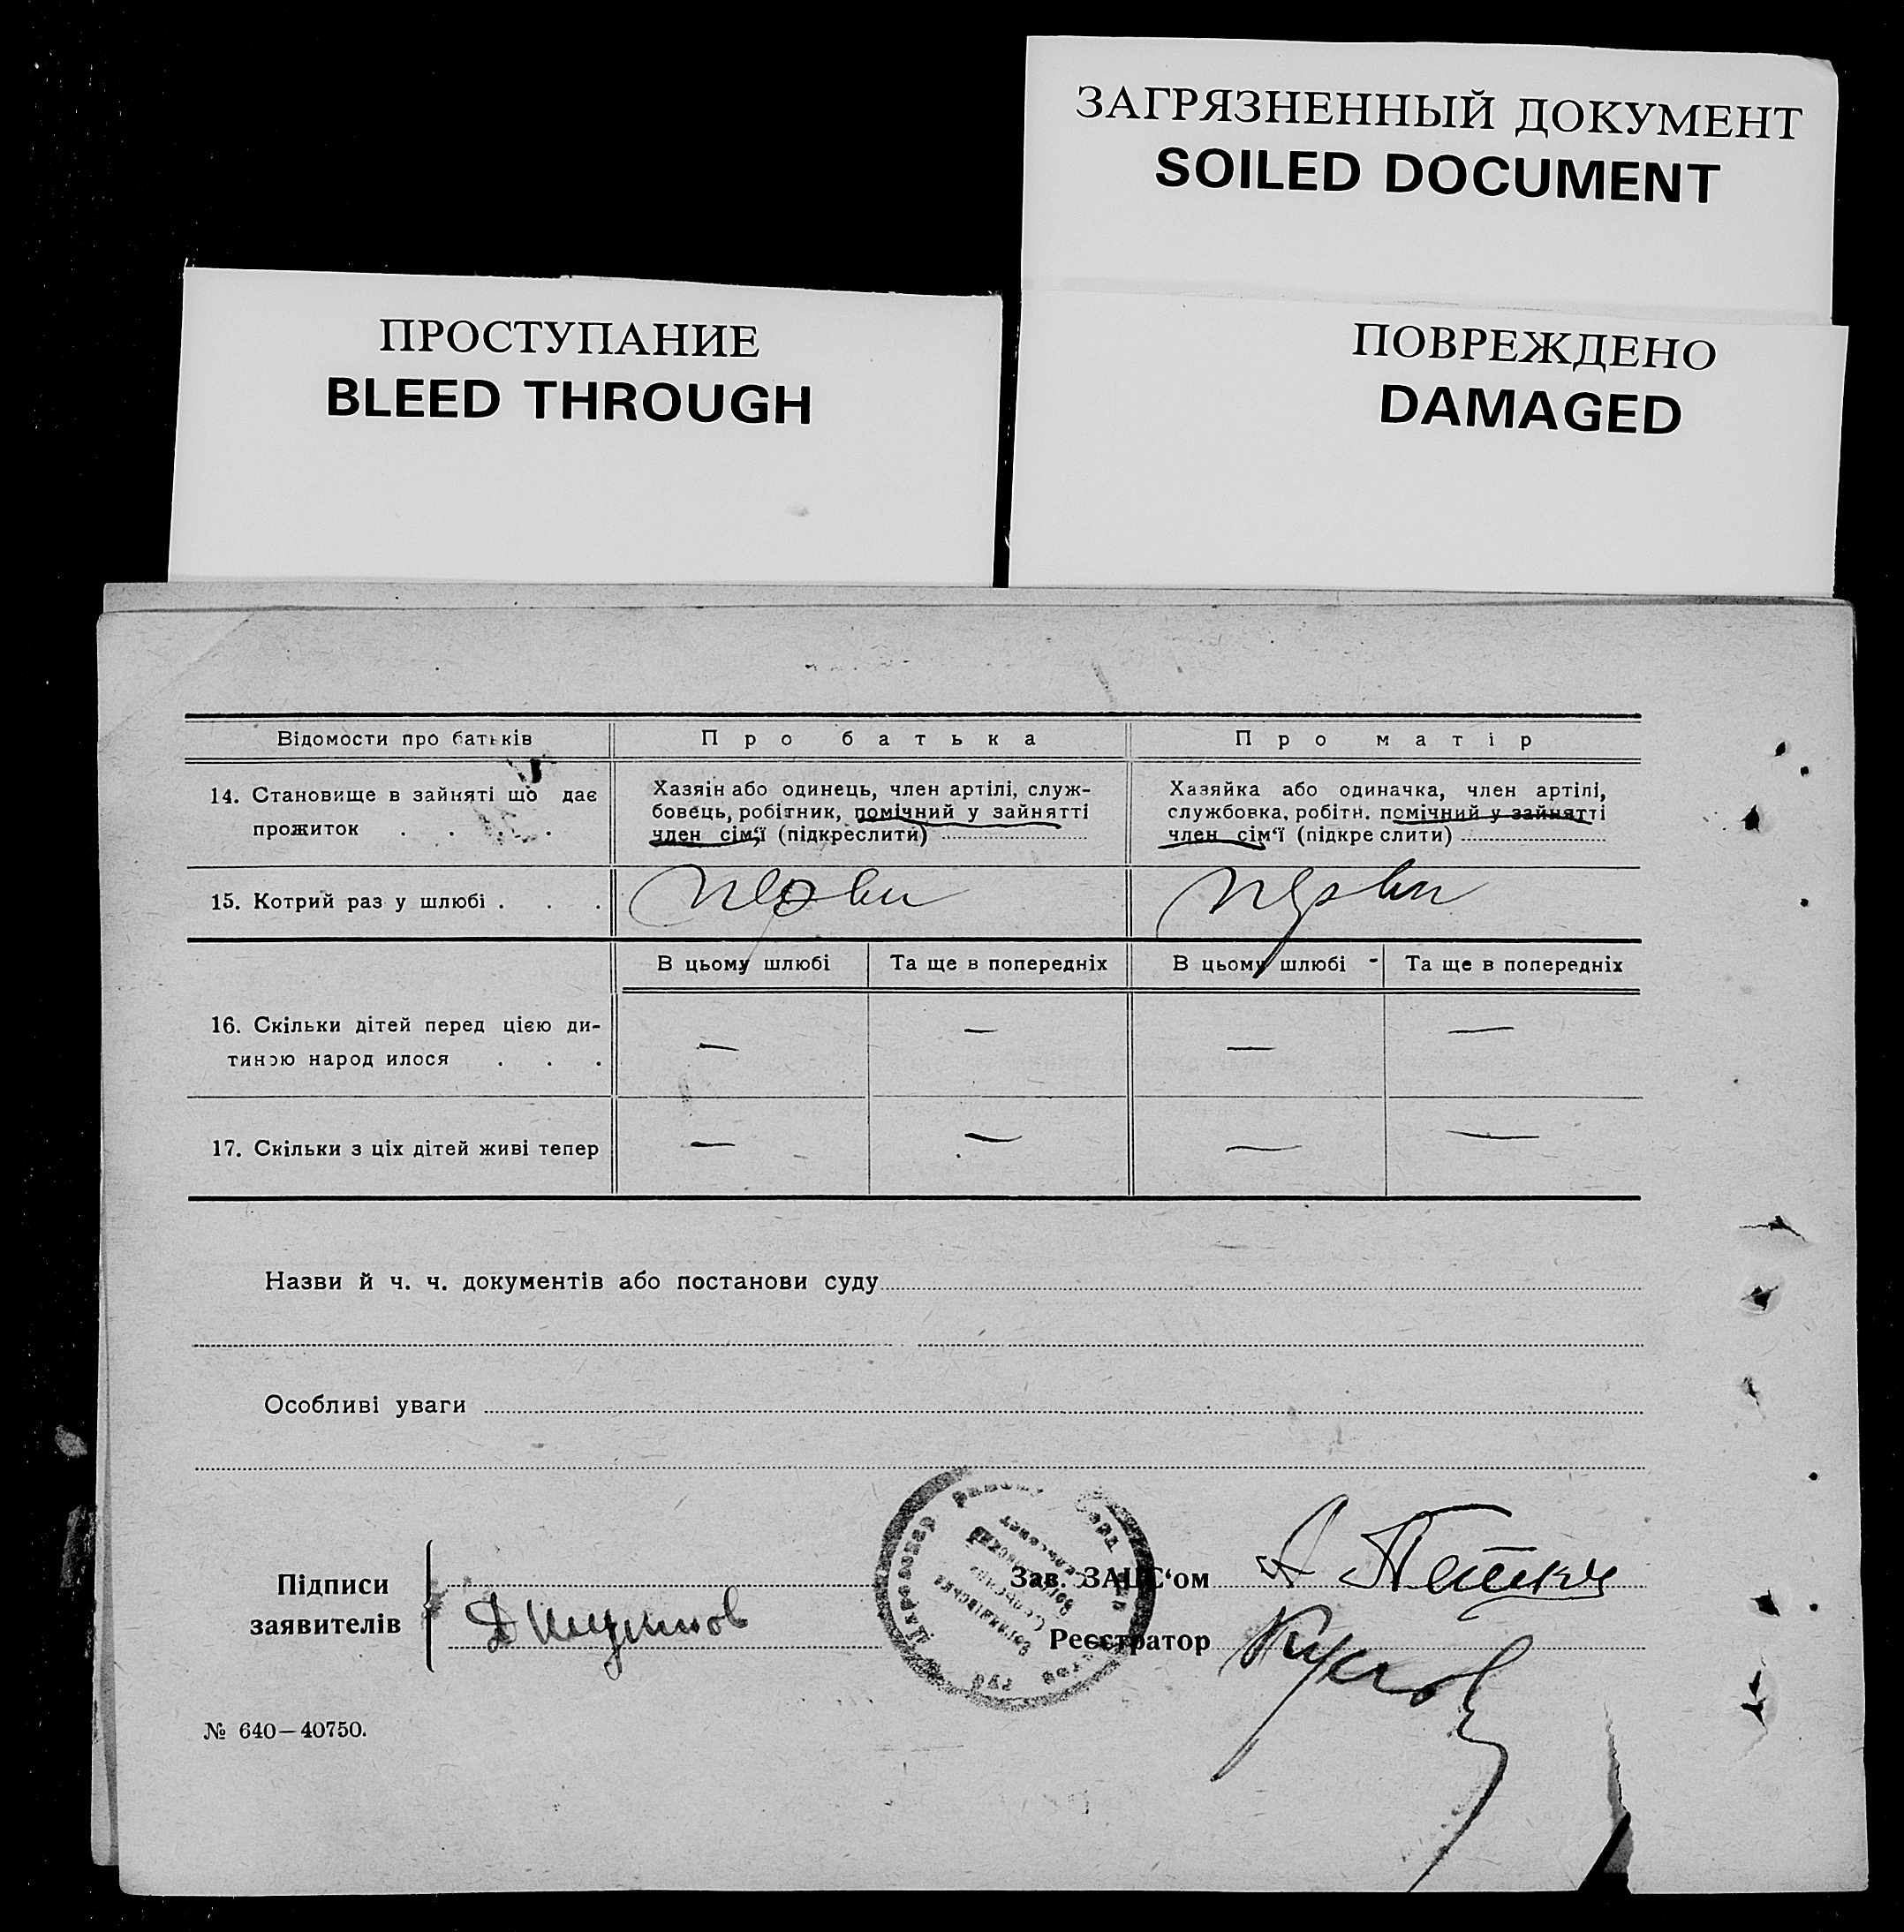 ЗАГРЯЗНЕННЫЙ ДОКУМЕНТ
SOILED DOCUMENT
ПРОСТУПАНИЕ
BLEED THROUGH
ПОВРЕЖДЕНО
DAMAGED
Відомости про батьків
Про батька
Про матір
14. Становище в зайняті що дає
прожиток . . . .
Хазяін або одинець, член артілі, служ-
бовець, робітник, помічний у зайнятті
член сім'ї (підкреслити)
Хазяйка або одиначка, член артілі,
службовка, робітн. помічний у зайнятті
член сім'ї (підкре слити)
15. Котрий раз у шлюбі . . .
перви
перви
В цьому шлюбі
Та ще в попередніх
В цьому шлюбі -
Та ще в попередніх
16. Скільки дітей перед цією ди-
тиною народ илося . . .
— — — —
17. Скільки з ціх дітей живі тепер
— — — —
Назви й ч. ч. документів або постанови суду
Особливі уваги
Підписи
заявителів
Зав. ЗАГС'ом
Реєстратор
№ 640—40750.